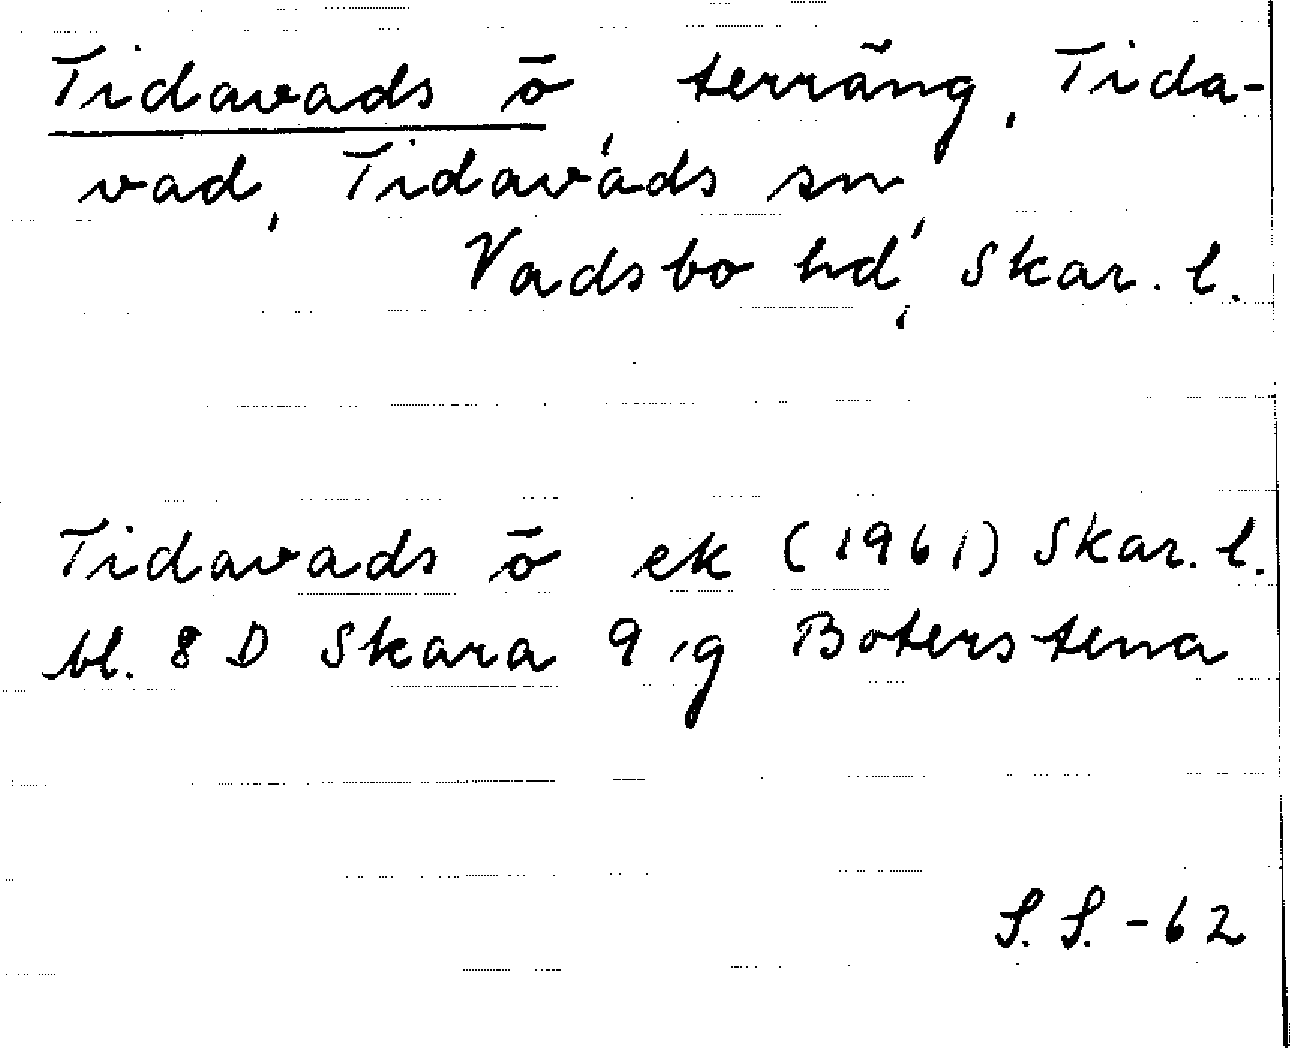 Tidavads ö terräng, Tida-
vad, Tidavads sn,
Vadsbo hd, Skar. l.
Tidavads ö ek (1961) Skar. l.
bl. 8 D Skara 9 g Boterstena
S. S. - 62